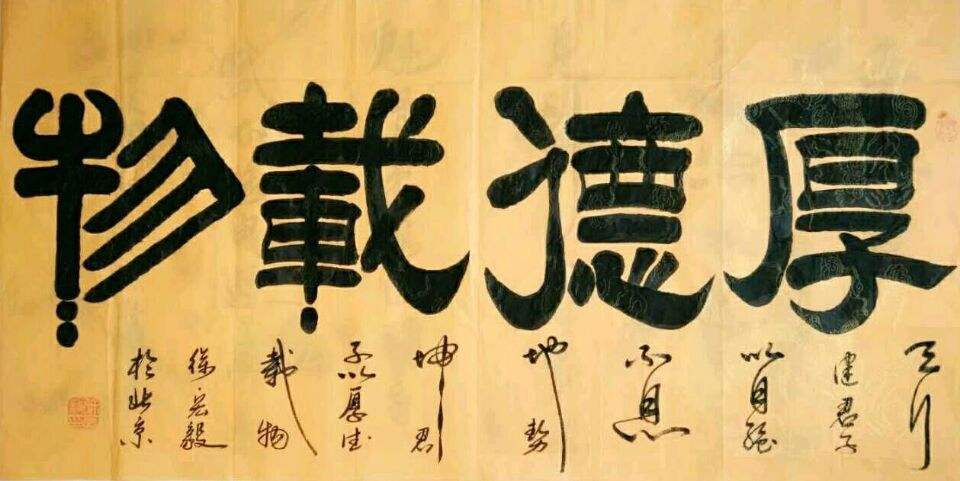 厚德載物
天行
健君子
以自强
不息
地势
坤君
子以厚德
載物
徐毅
於北京